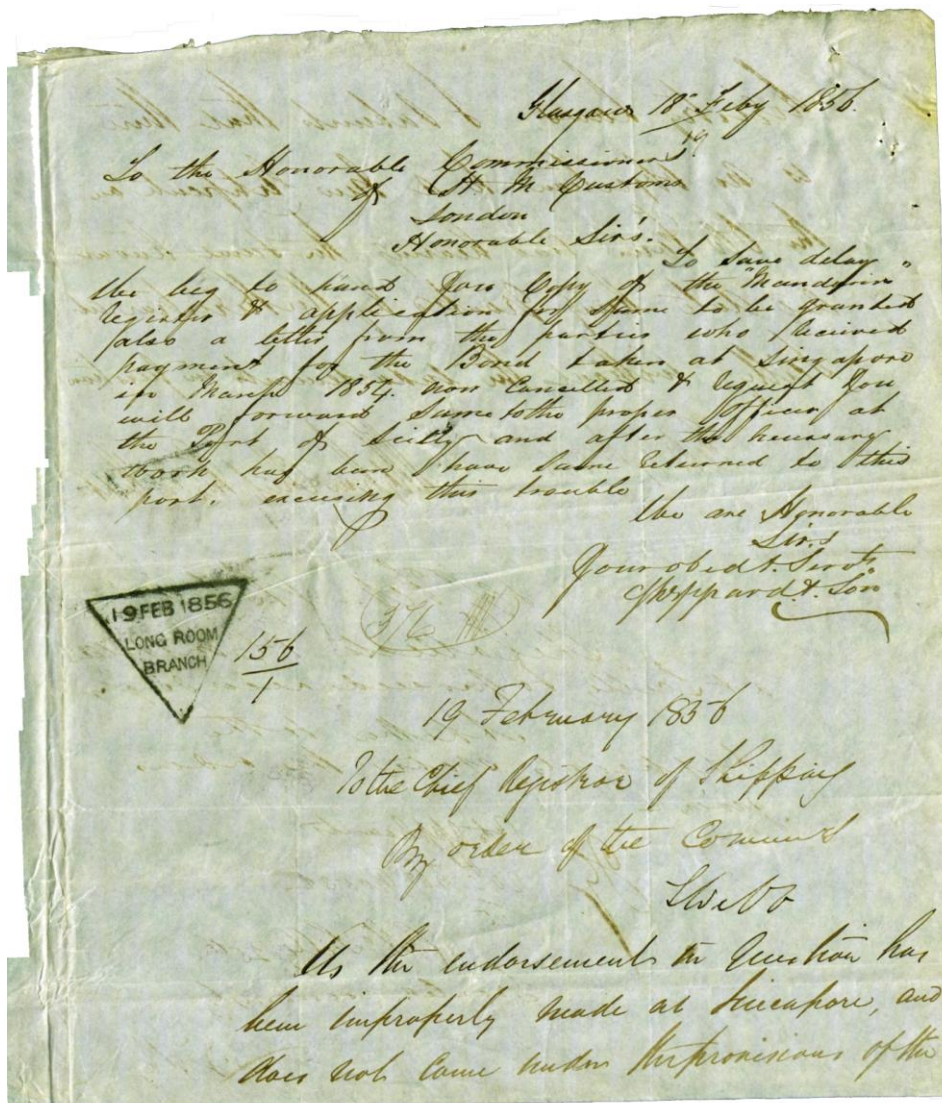 Glasgow 18th Feby 1856.
To the Honorable Commissioners
of H M Customs
London
Honorable Sir's.
To save delay
We beg to hand you Copy of the "Mandarin"
register & application for same to be granted
also a letter from the parties who received
payment for the Bond taken at Singapore
in March 1854. now Cancelled & request you
will forward same to the proper Officer at
the Port of Scilly and after the necessary
work has been have same returned to this
port. excusing this trouble
We are Honorable
Sir.s
Your obedt. Servts.
Sheppard & Son
19 FEB 1856
LONG ROOM
BRANCH
156
1
376
19 February 1856
To the Chief Registrar of Shipping
By order of the Commrs
As the endorsement in Question has
been improperly made at Sincapore, and
does not come under the provisions of the